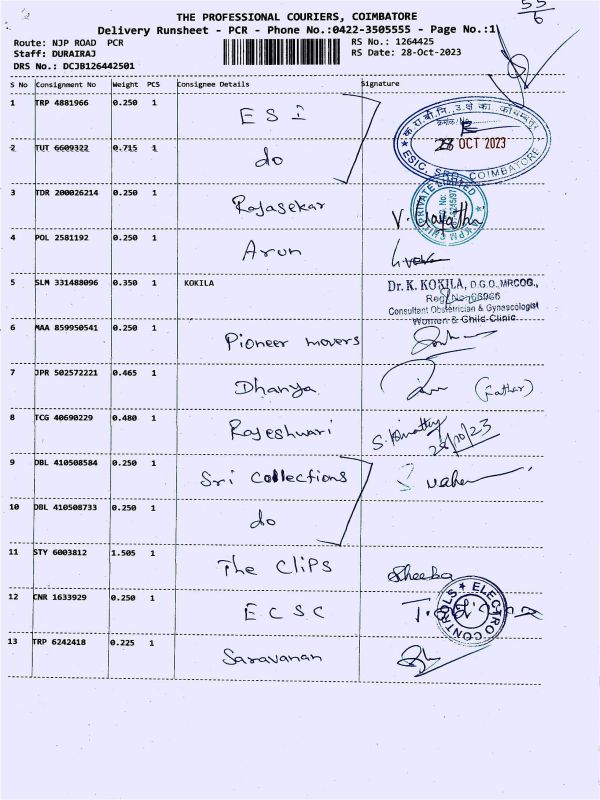 55
6
THE PROFESSIONAL COURIERS, COIMBATORE
Delivery Runsheet - PCR - Phone No.:0422-3505555 - Page No.:1
Route: NJP ROAD PCR
RS No.: 1264425
Staff: DURAIRAJ
RS Date: 28-Oct-2023
DRS No.: DCJB126442501
S No Consignment No Weight PCS Consignee Details Signature
1 TRP 4881966 0.250 1 ESI
28 OCT 2023
ESIC, SRO, COIMBATORE
2 TUT 6609322 0.715 1 do
3 TDR 200026214 0.250 1 Rajasekar
PRIVATE LIMITED
4 POL 2581192 0.250 1 Arun
5 SLM 331488096 0.350 1 KOKILA
Dr. K. KOKILA, D.G.O.,MRCOG.,
Consultant Obstetrician & Gynaecologist
Women & Child Clinic
6 MAA 859950541 0.250 1 Pioneer movers
7 JPR 502572221 0.465 1 Dhanya (Father)
8 TCG 40690229 0.480 1 Rajeshwari
28/10/23
9 DBL 410508584 0.250 1 Sri Collections
10 DBL 410508733 0.250 1 do
11 STY 6003812 1.505 1 The Clips Sheeba
12 CNR 1633929 0.250 1 ECSC
ELECTRO CONTROLS
13 TRP 6242418 0.225 1 Saravanan